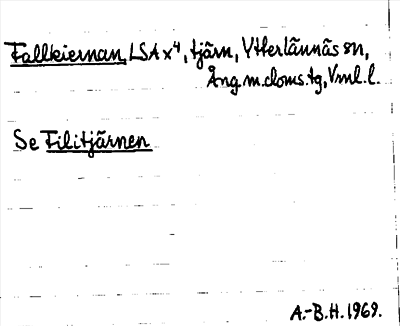 Fallkiernan, LSA x⁴, tjärn, Ytterlännäs sn,
Ång.m.doms.tg, Vml.l.
Se Filitjärnen
A.-B.H. 1969.